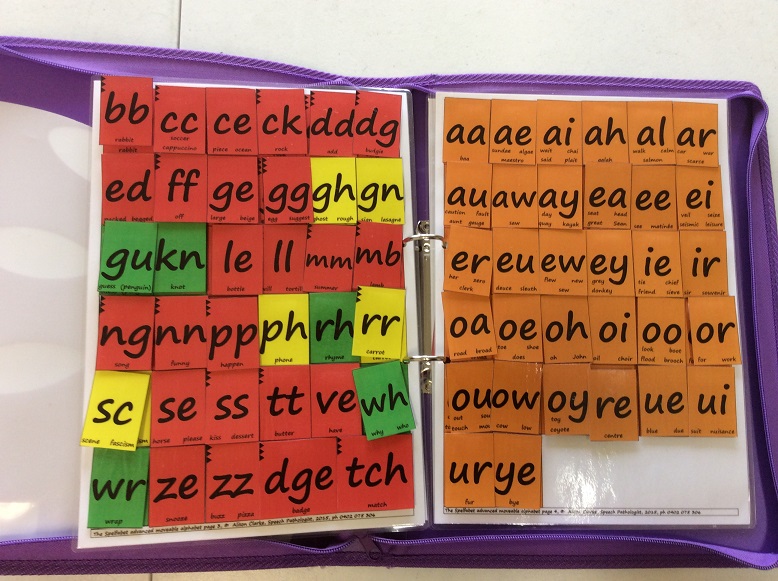 bb cc ce ck dd dg
rabbit soccer piece ocean rock add budgie
rabbit cappuccino
ed ff ge gg gh gn
packed begged off large beige egg suggest ghost rough sign lasagne
gu kn le ll mm mb
guess (penguin) knot bottle ill tortilla summer
ng nn pp ph rh rr
song funny happen phone rhyme carrot
sc se ss tt ve wh
scene fascism horse please kiss dessert butter have why who
wr ze zz dge tch
wrap snooze buzz pizza badge match
The Spelfabet advanced moveable alphabet page 3, © Alison Clarke, Speech Pathologist, 2015, ph 0402 075 306
aa ae ai ah al ar
baa sundae algae wait chai aalah walk calm car war
maestro said plait salmon scarce
au aw ay ea ee ei
caution fault saw day seat head see matinée veil seize
aunt gauge quay kayak great Sean seismic leisure
er eu ew ey ie ir
her zero deuce sleuth flew new grey tie chief sir souvenir
clerk sew donkey friend sieve
oa oe oh oi oo or
road broad toe shoe oh John oil choir look boot for work
does flood brooch
ou ow oy re ue ui
out soul cow low toy centre blue due suit nuisance
touch coyote
ur ye
fur bye
The Spelfabet advanced moveable alphabet page 4, © Alison Clarke, Speech Pathologist, 2015, ph 0402 075 306